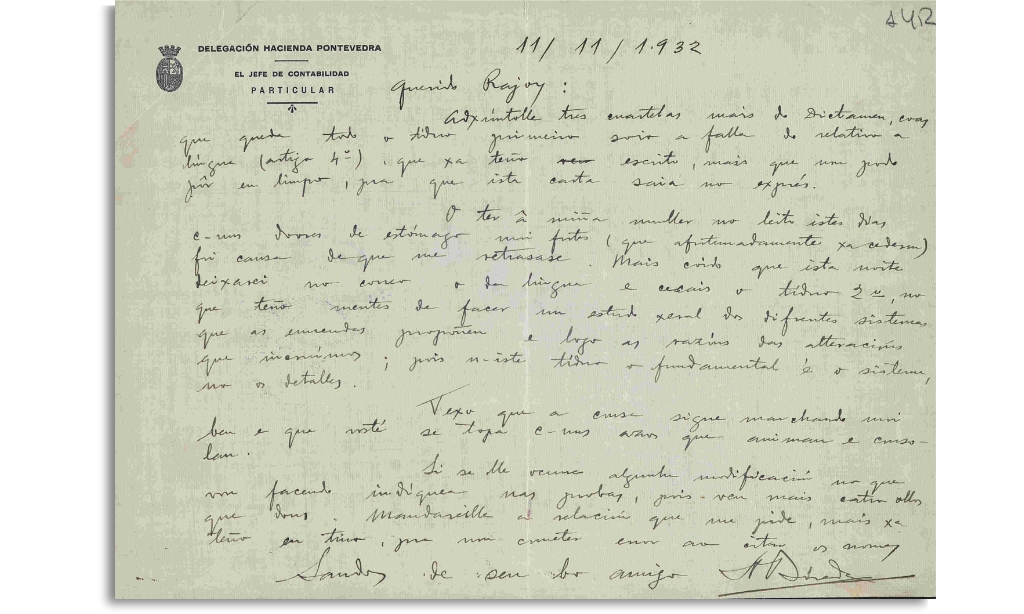 A42
DELEGACIÓN HACIENDA PONTEVEDRA
EL JEFE DE CONTABILIDAD
PARTICULAR
11/11/1.932
Querido Rajoy:
Adxúntolle tres cuartelas mais do Dictamen, coas
que queda todo o tiduo primeiro soio a falla do relativo a
lingua (artigo 4º) que xa teño escrito, mais que non pode
pôr en limpo, pra que ista carta saia no exprés.
O ter â miña muller no leito istes días
c-uns doores de estómago moi fortes (que afortunadamente xa cederon)
foi causa de que me retrasase. Mais coido que ista noite
deixarei no correo o da lingua e cecais o tíduo 2º, no
que teño mentes de facer un estudo xeral dos difrentes sistemas
que as enmendas propoñen e logo as razóns das alteracións
que incruimos; pois n-iste tíduo o fundamental é o sistema,
no os detalles.
Vexo que a cousa sigue marchando moi
ben e que vosté se topa c-uns azos que animan e conso-
lan.
Si se lle ocurre algunha modificación no que
vou facendo indíquea nas probas, pois ven mais catro ollos
que dous. Mandareille a relación que me pide, mais xa
teño en tino, pra non cometer error ao citar os nomes
Saudos de seu bo amigo